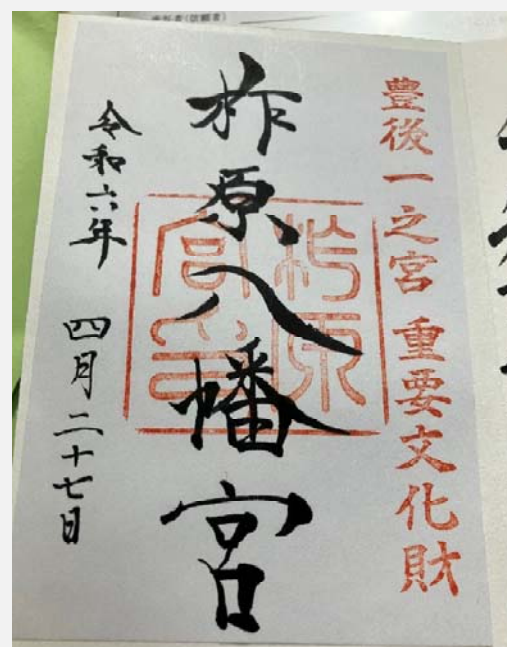 豊後一之宮 重要文化財
柞原八幡宮
柞原
宮印
令和六年 四月二十七日